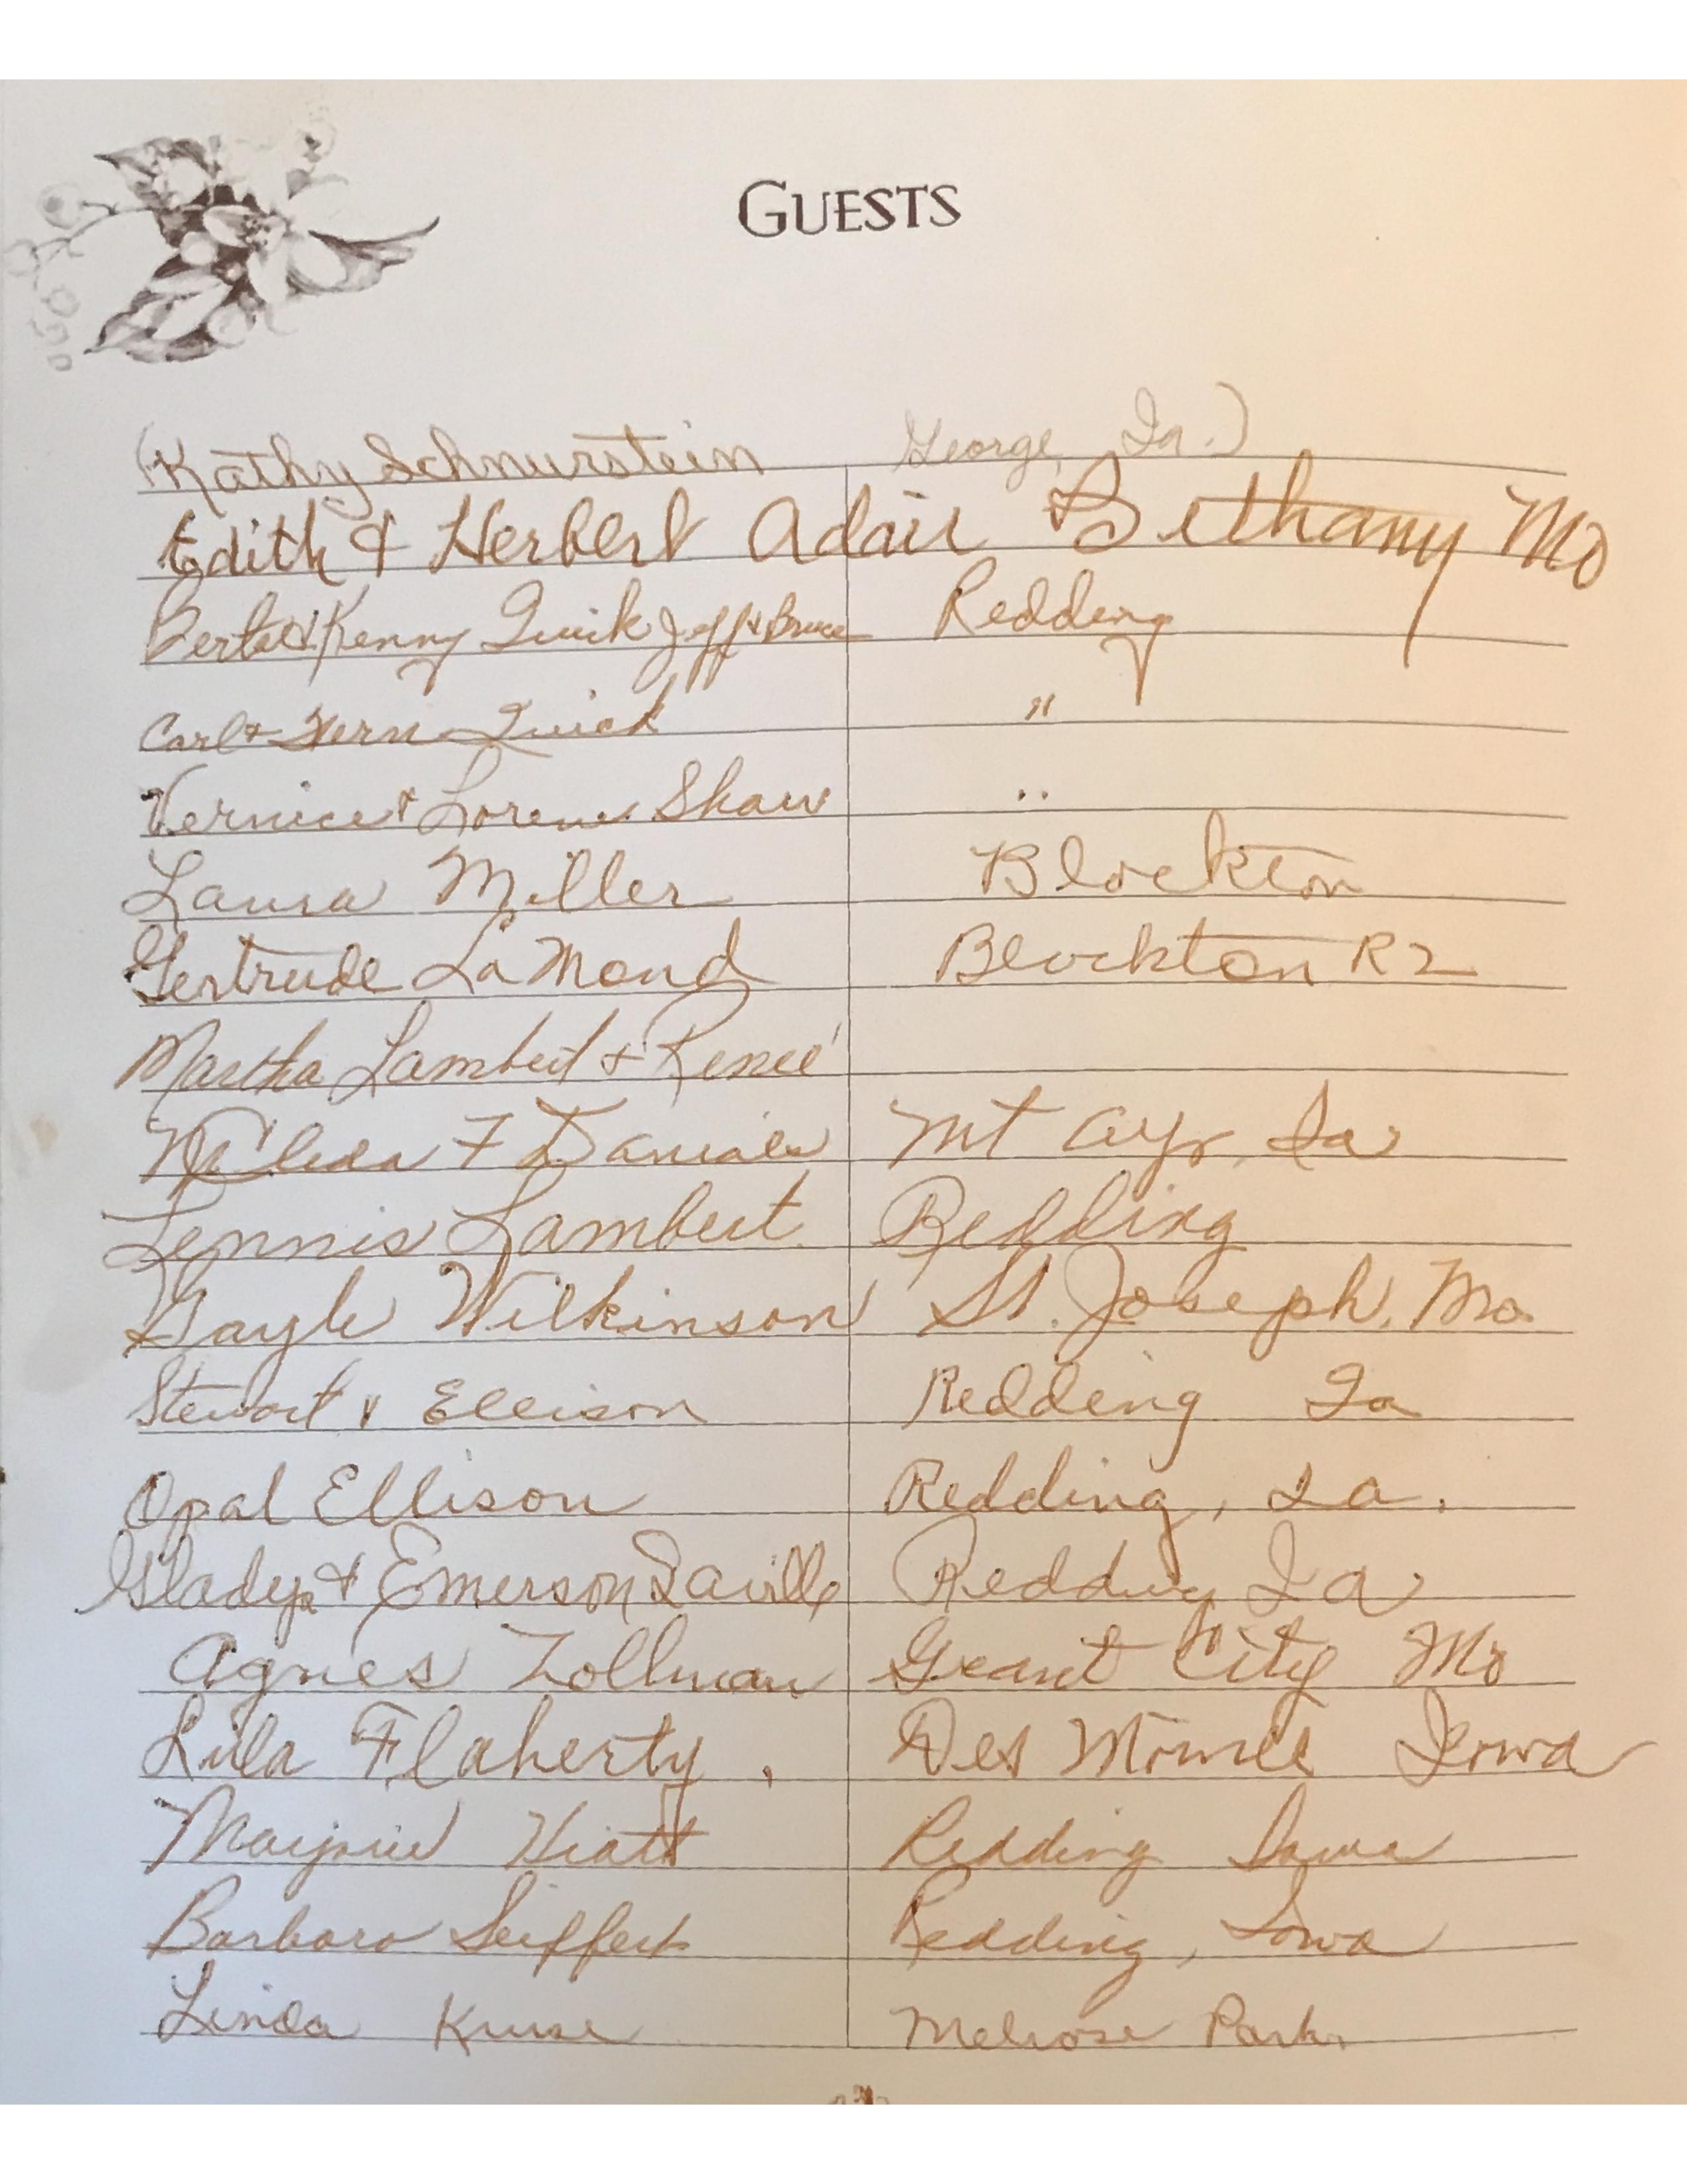 GUESTS
(Kathy Schnurstein George, Ia.)
Edith & Herbert Adair Bethany Mo
Berta & Kenny Quick Jeff & Bruce Redding
Carl & Fern Quick "
Vernice & Lorene Shaw ..
Laura Miller Blockton
Gertrude LaMond Blockton R2
Martha Lambert & Reneé
F Daniels Mt Ayr, Ia
Lennis Lambert Redding
Gayle Wilkinson St. Joseph, Mo.
Stewart Ellison Redding Ia
Opal Ellison Redding, Ia.
Gladys & Emerson Saville Redding Ia
Agnes Zollman Grant City Mo
Lula Flaherty. Des Moines Iowa
Marjorie Hiatt Redding Iowa
Barbara Seiffert Redding, Iowa
Linda Kruse Melrose Park.